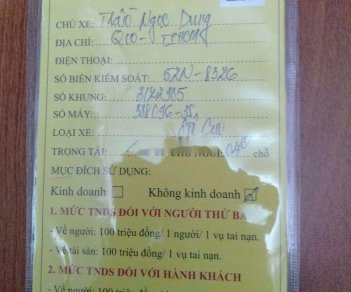 CHỦ XE: Trần Ngọc Dung
ĐỊA CHỈ: Q10 - TPHCM
ĐIỆN THOẠI:
SỐ BIỂN KIỂM SOÁT: 52N-8326
SỐ KHUNG: 3172905
SỐ MÁY:
LOẠI XE:
TRỌNG TẢI: chỗ
MỤC ĐÍCH SỬ DỤNG:
Kinh doanh Không kinh doanh
1. MỨC TNDS ĐỐI VỚI NGƯỜI THỨ BA
- Về người: 100 triệu đồng/ 1 người/ 1 vụ tai nạn.
- Về tài sản: 100 triệu đồng/ 1 vụ tai nạn.
2. MỨC TNDS ĐỐI VỚI HÀNH KHÁCH
- Về người: 100 triệu đồng/ 1 người/ 1 vụ tai nạn.